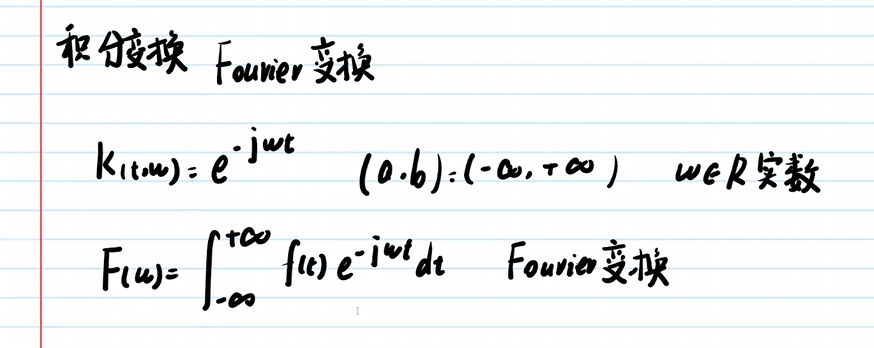 积分变换 Fourier 变换
K(t,w) = e^{-jwt} (a.b) = (-∞, +∞) w∈R 实数
F(w) = ∫_{-∞}^{+∞} f(t) e^{-jwt} dt Fourier 变换